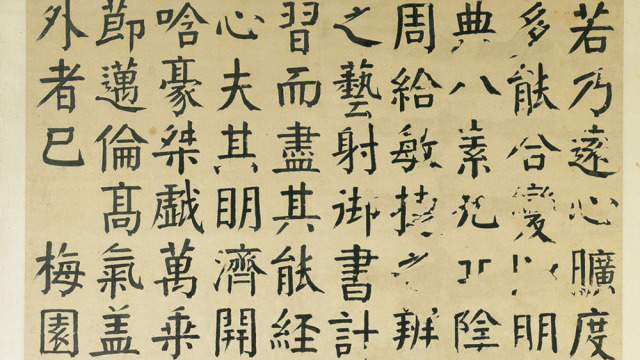 若乃遠心曠度
多能合變以明
典八素九丘陰
周給敏捷之辨
之藝射御書計
習而盡其能経
心夫其眀濟開
唅豪桀戯萬乗
節邁倫髙氣盖
外者已 梅園